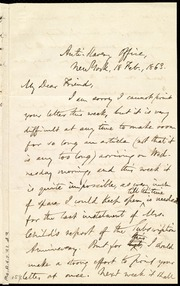 Anti-Slavery Office,
New York, 18 Feb., 1863.
My Dear Friend,
I am sorry I cannot print
your letter this week, but it is very
difficult at any time to make room
for so long an article (not that it
is any too long) arriving on Wed-
nesday morning, and this week it
is quite impossible, as every inch
of space I could keep open till this time is needed
for the last instalment of Mrs.
Child's report of the subscription
Anniversary. But for this I should
make a strong effort to print your
letter at once. Next week it shall